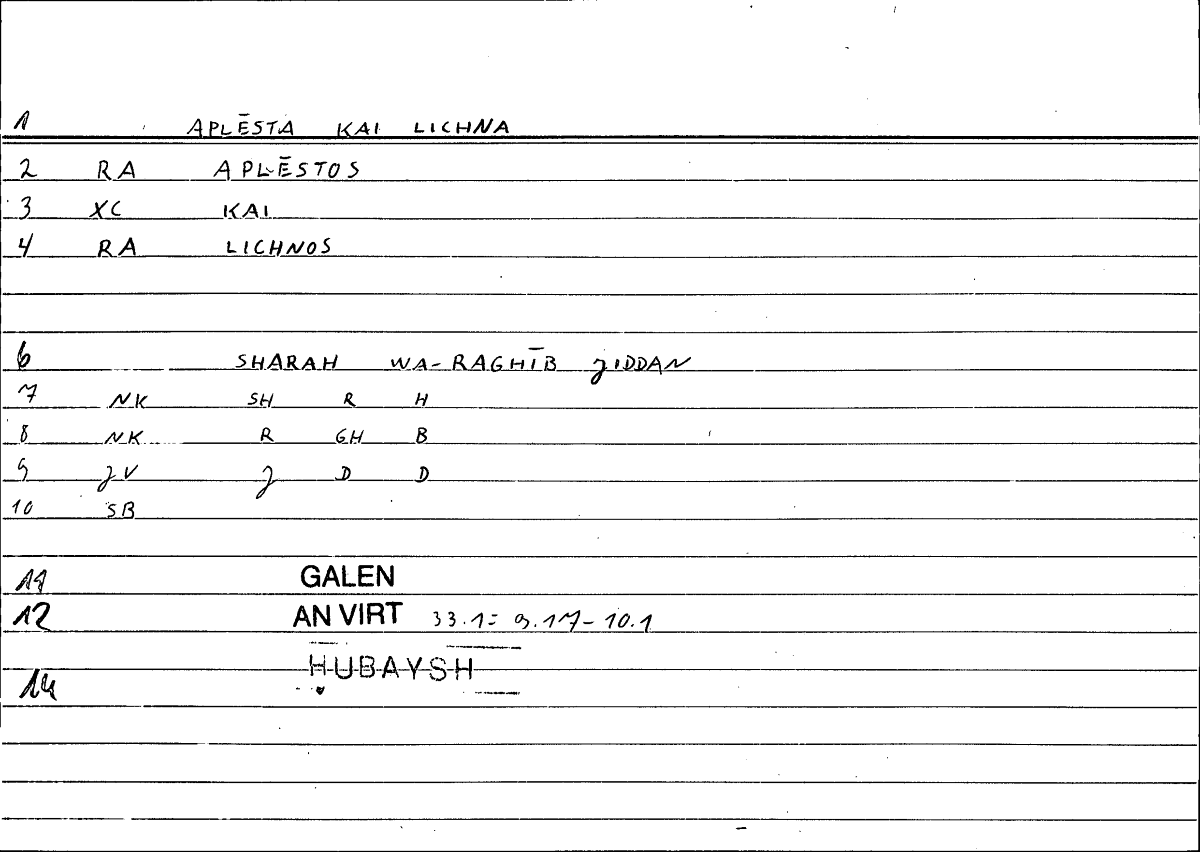 1 APLĒSTA KAI LICHNA
2 RA APLĒSTOS
3 XC KAI
4 RA LICHNOS
6 SHARAH WA-RAGHĪB JIDDAN
7 NK SH R H
8 NK R GH B
9 JV J D D
10 SB
11 GALEN
12 AN VIRT 33.1= 9.17-10.1
HUBAYSH
14